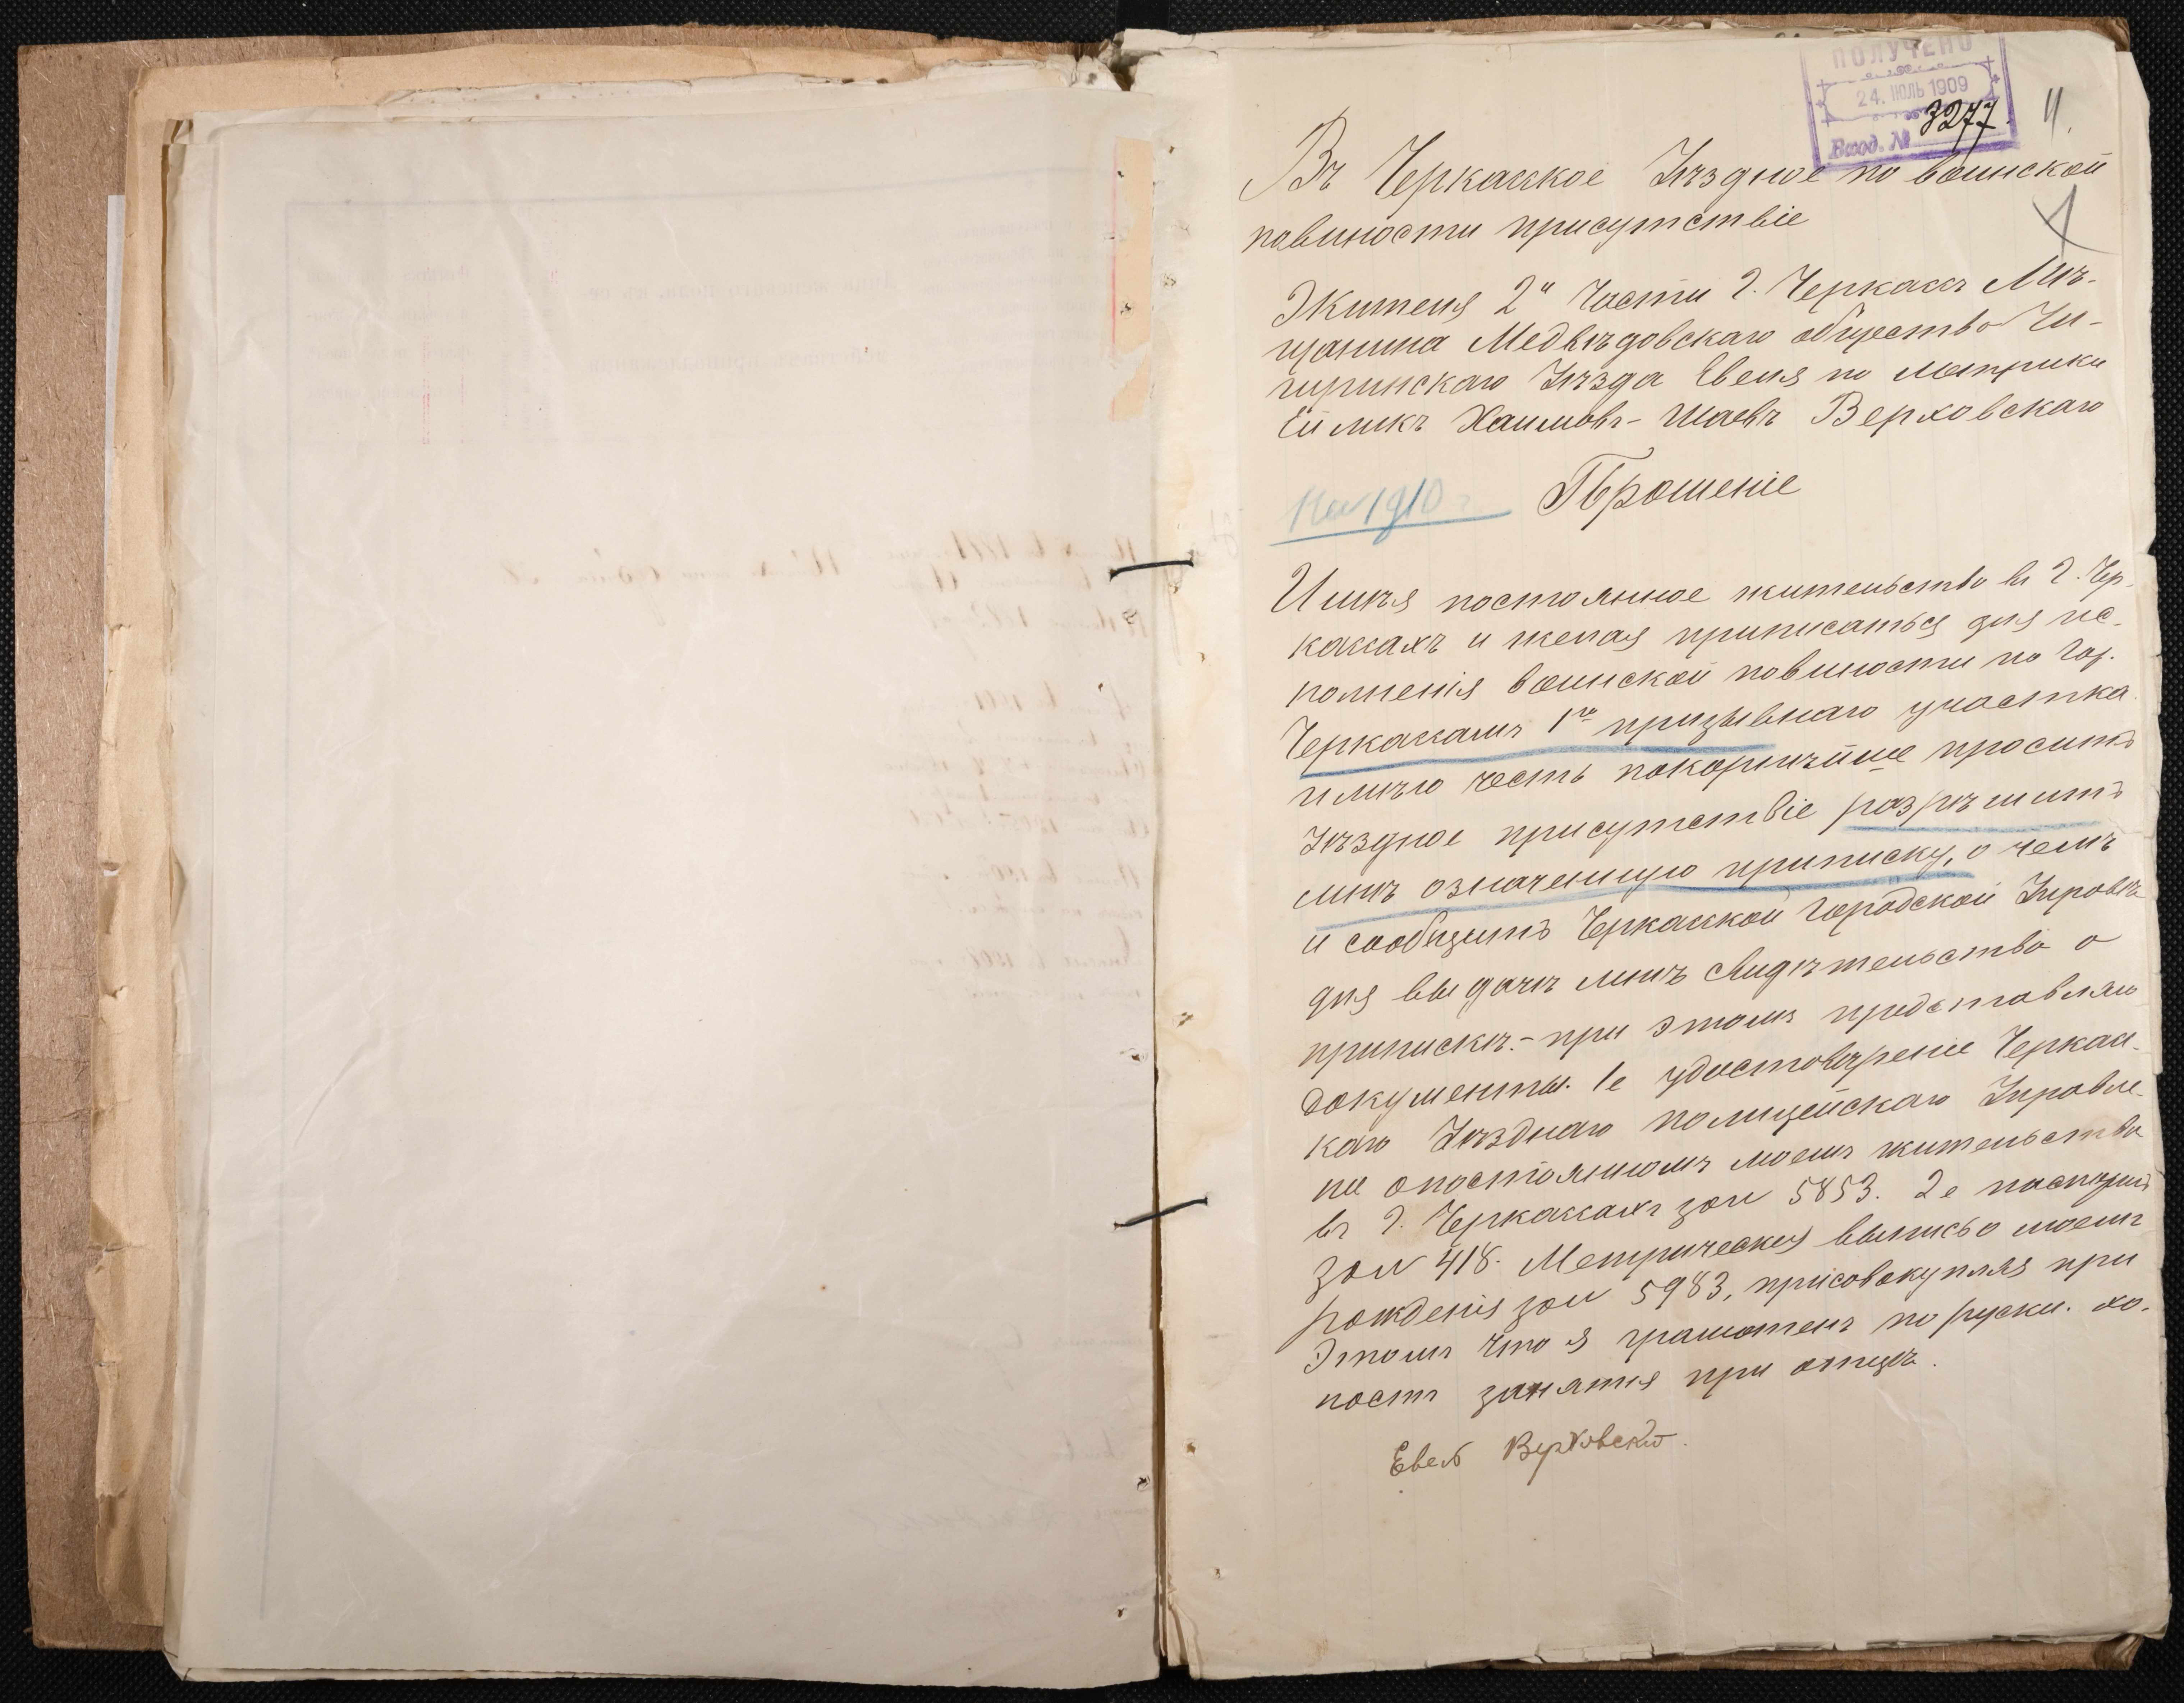 ПОЛУЧЕНО
24. ІЮЛЬ 1909
Вход. № 3277.
11.
Въ Черкасское Уѣздное по воинской
повиности присутствіе
Жителя 2й Части г. Черкассъ Мѣ-
щанина Медвѣдовскаго общества Чи-
гиринскаго Уѣзда Евеля по метрики
Ейликъ Хаимовъ-Шаевъ Верховскаго
На 1910 г.
Прошеніе
Имѣя постоянное жительство въ г. Чер-
кассахъ и желая приписаться для ис-
полненія воинской повиности по гор.
Черкассамъ 1го призывнаго участка
имѣю честь покорнѣйше просить
Уѣздное присутствіе разрѣшить
мнѣ означенную приписку, о чемъ
и сообщить Черкасской Городской Управѣ
для выдачи мнѣ свидѣтельства о
припискѣ.- при этомъ представляю
документы. 1е удостовѣреніе Черкас-
каго Уѣзднаго полицейскаго Управле-
нія о постоянномъ моемъ жительства
въ г. Черкассахъ за № 5853. 2е паспортъ
за № 418. Метрическая выпись о моемъ
рожденія за № 5983, присовокупляя при
этомъ что я грамотенъ по руски. хо-
лостъ занятія при отцѣ.
Евель Верховскій.